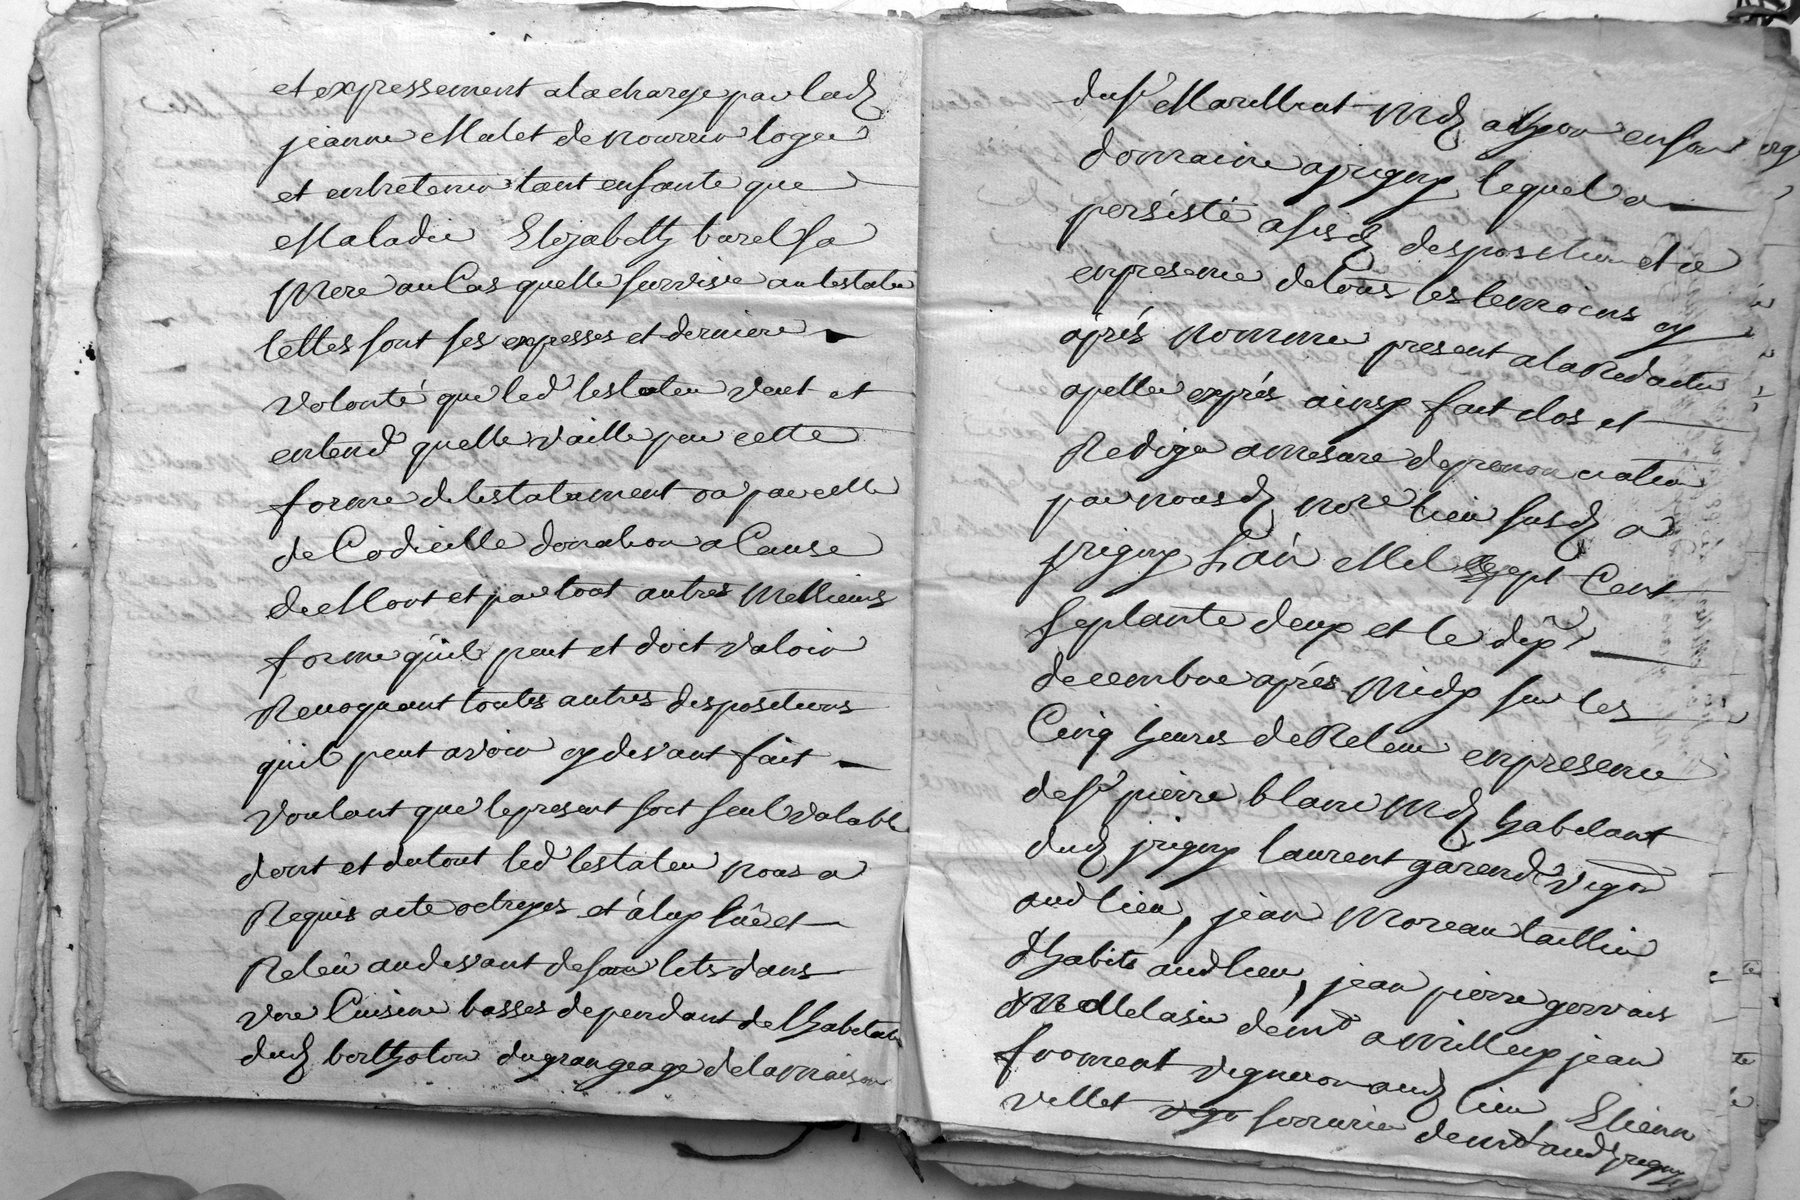 et expressement a la charge par lad
jeanne Malet de nourrir loger
et entretenir tant enfante que
Maladie Elizabeth barel sa
Mere au Cas quelle survive au testateu
telles sont ses expresses et derniere
volonté que led testateu veut et
entend quelle vaille par cette
forme de testatament ou par celle
de Codicille donation a Cause
de Mort et par tout autres Mellieurs
forme quil peut et doit valoir
Revoquant toutes autres dispositions
quil peut avoir cy devant fait
voulant que le present soit seul valabl
dont et du tout led testateu nous a
Requis acte octroyes et a luy lû et
Releû au devant de son lits dans
une Cuisine basses dependant de lhabitati
dud bertholon du grangeage de la maison
du sr Marillat Md a lyon en son
domaine a jrigny lequel a
persisté a sisd disposition et ce
en presence de tous les temoins cy
aprés nomme present a la Redaction
apelle exprés ainsy fait clos et
Redige a mesure de prononciation
par nousd nore lieu susd a
jrigny L'an Mil sept Cent
septante deux et le dix
decembre aprés Midy sur les
Cinq heures de Releveé en presence
de sr pierre blanc Md habitant
dud jrigny laurent garend vigon
aud lieu, jean Moreau taillieu
d'habits aud lieu, jean pierre gervais
demt a Millery jean
froment vigneron aud lieu Etienn
villet serrurier demt aud jrigny